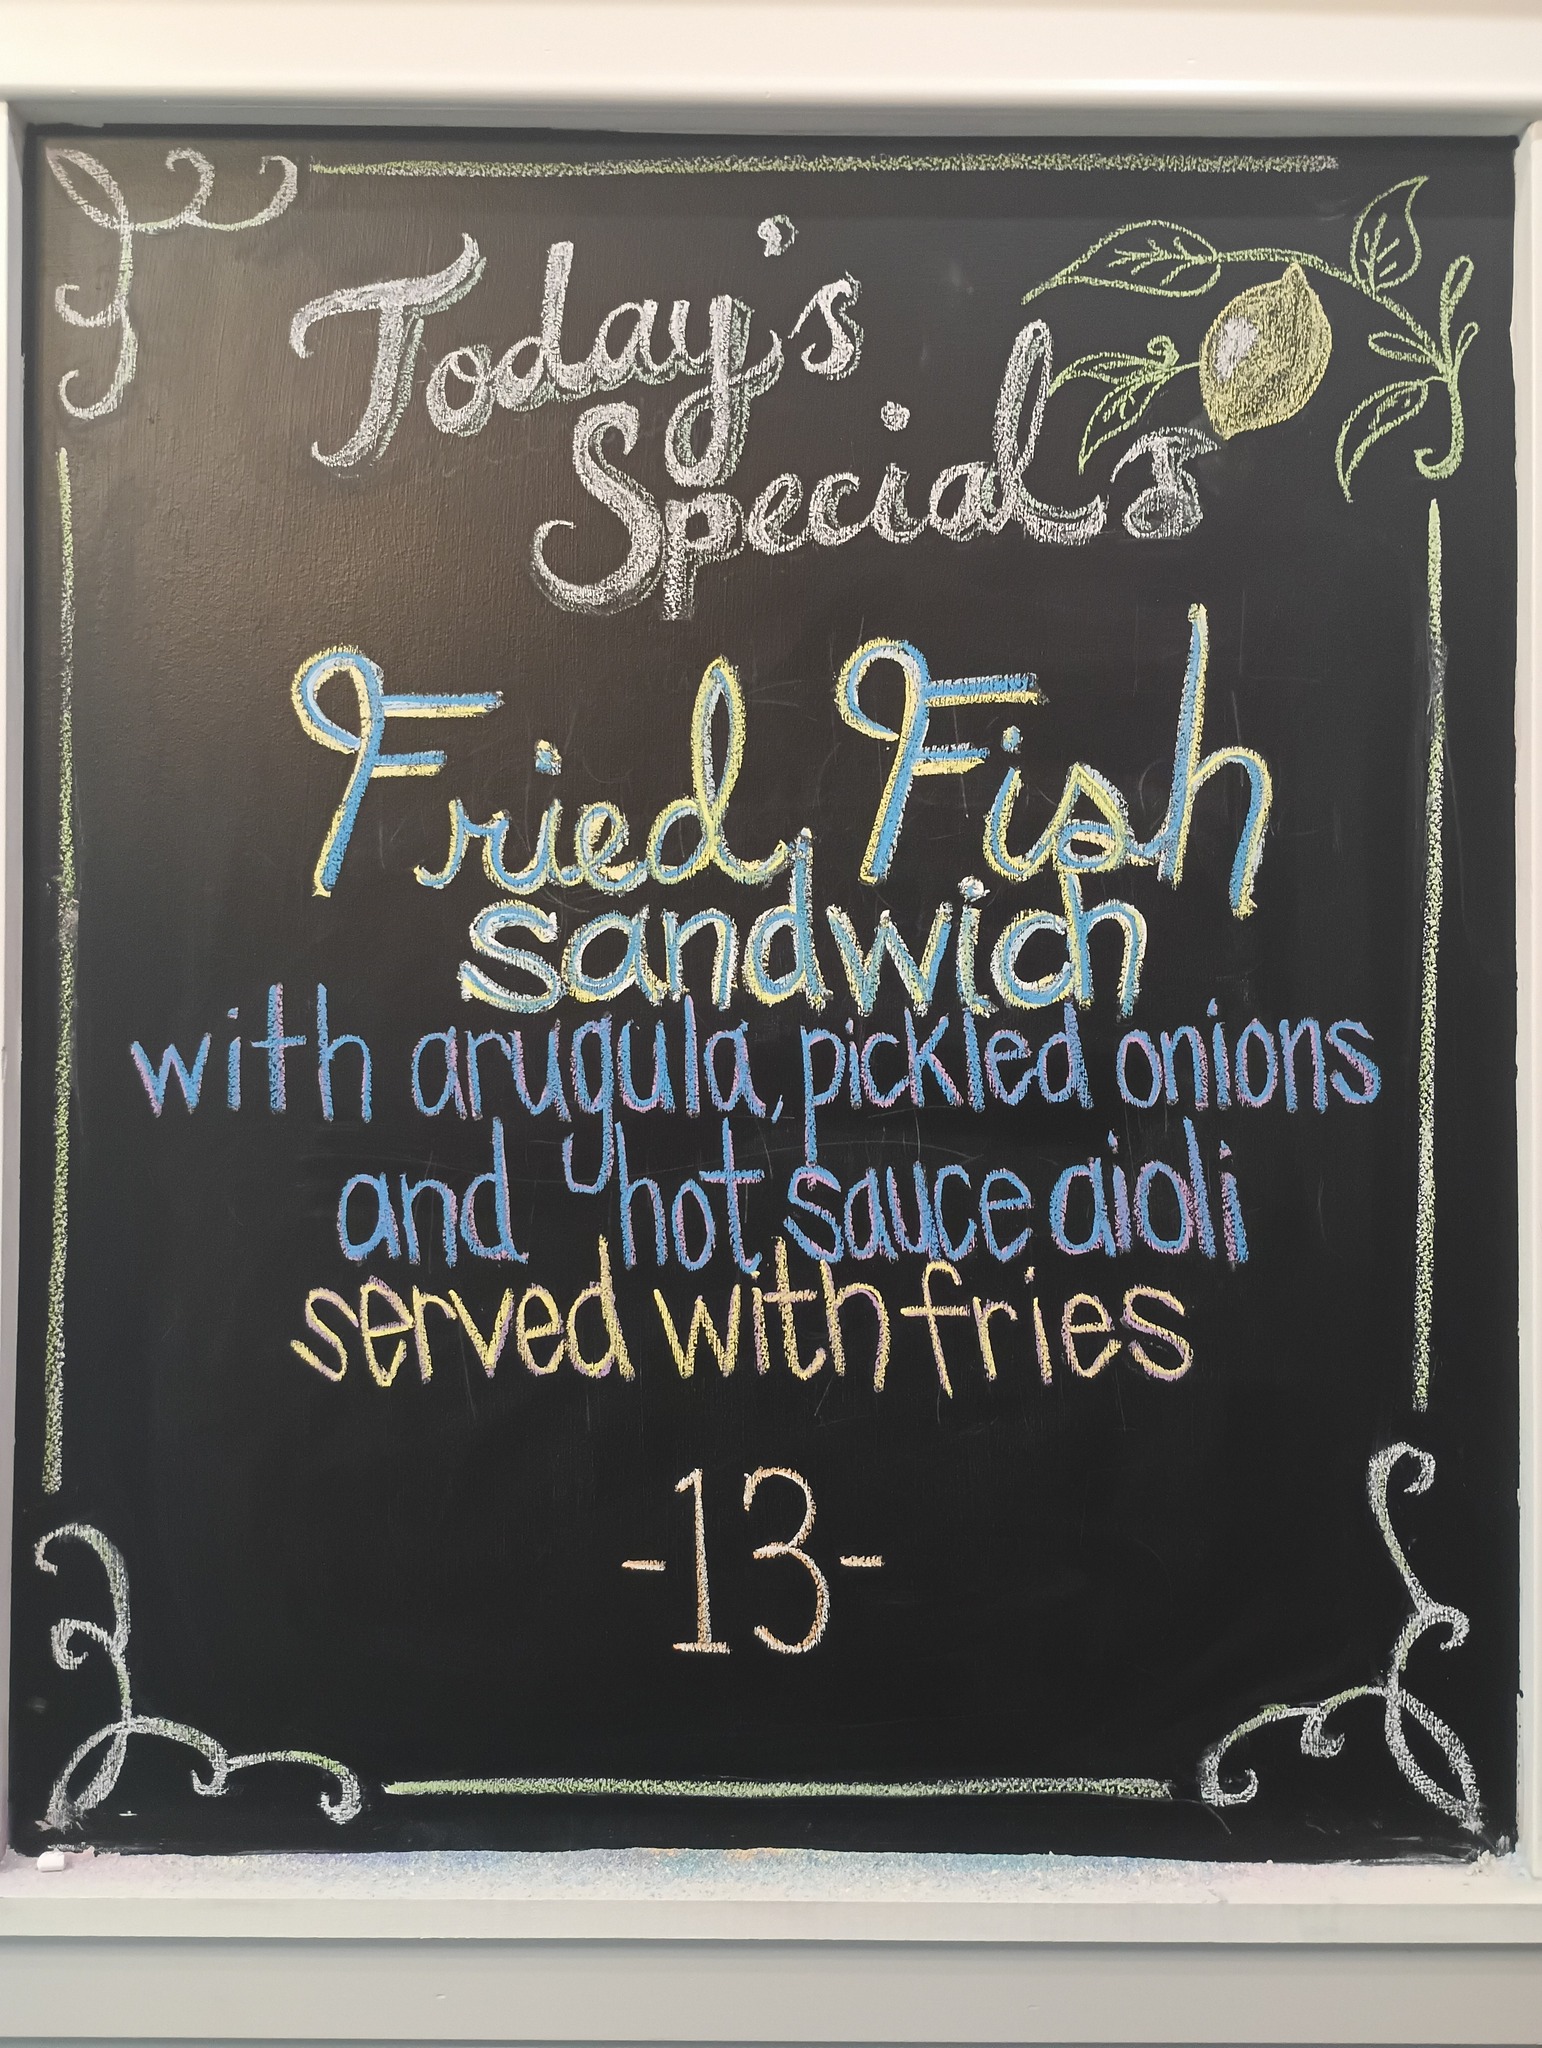 Today's
Specials
Fried Fish
sandwich
with arugula, pickled onions
and hot sauce aioli
served with fries
-13-